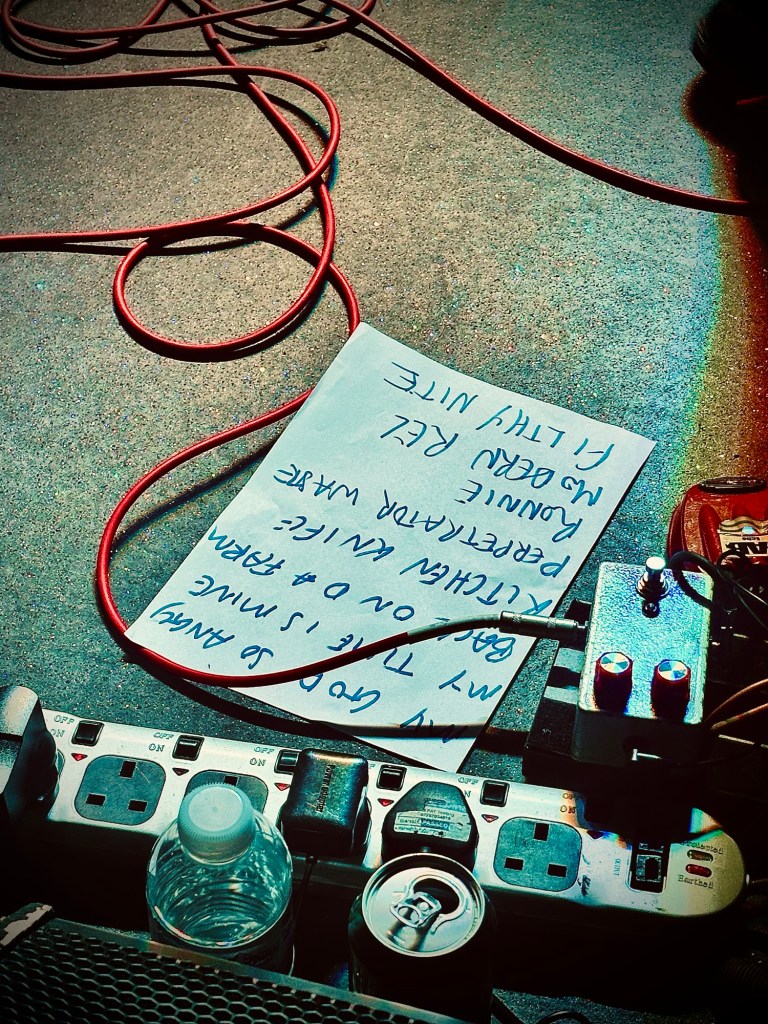 MY GOD SO ANGRY
MY TIME IS MINE
BACK ON DA FARM
KITCHEN KNIFE
PERPETRATOR WASTE
RONNIE
MODERN
FILTHY NITE
OFF
ON
OFF
ON
OFF
ON
OFF
ON
PASSED
Protected
Earthed